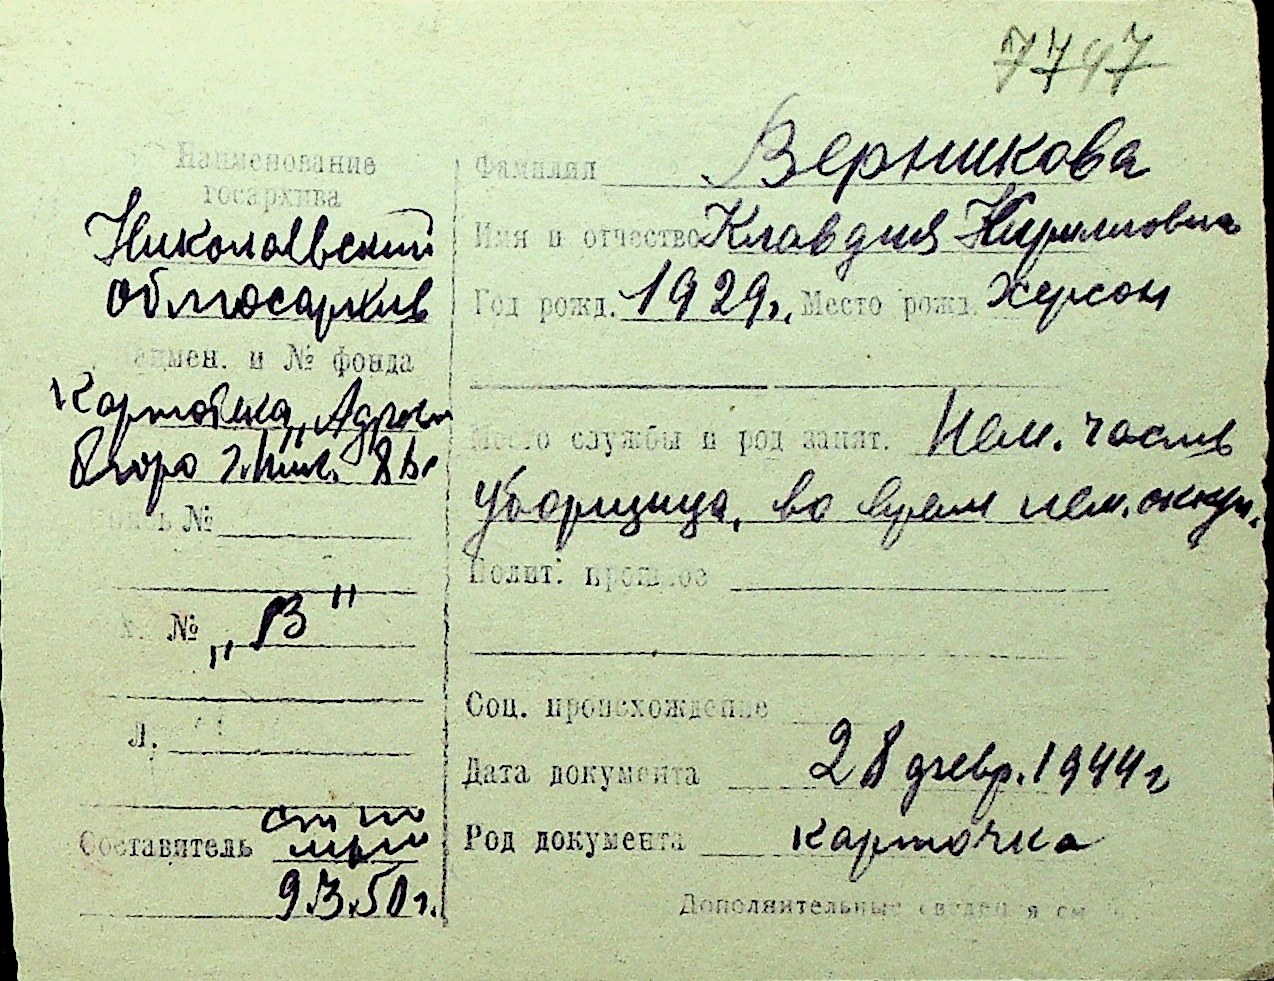 7747
Наименование
госархива
Николаевский
облгосархив
Наимен. и № фонда
Картотека „Адресн
бюро г. Ник.
Опись №
х. № „В"
Л.
Составитель
9.3.50 г.
Фамилия Верникова
Имя и отчество Клавдия Кирилловна
Год рожд. 1929 г. Место рожд. Херсон
Место службы и род занят. Нем. часть
уборщица, во время нем. оккуп.
Полит. прошлое
Соц. происхождение
Дата документа 28 февр. 1944 г
Род документа карточка
Дополнительные сведения см.